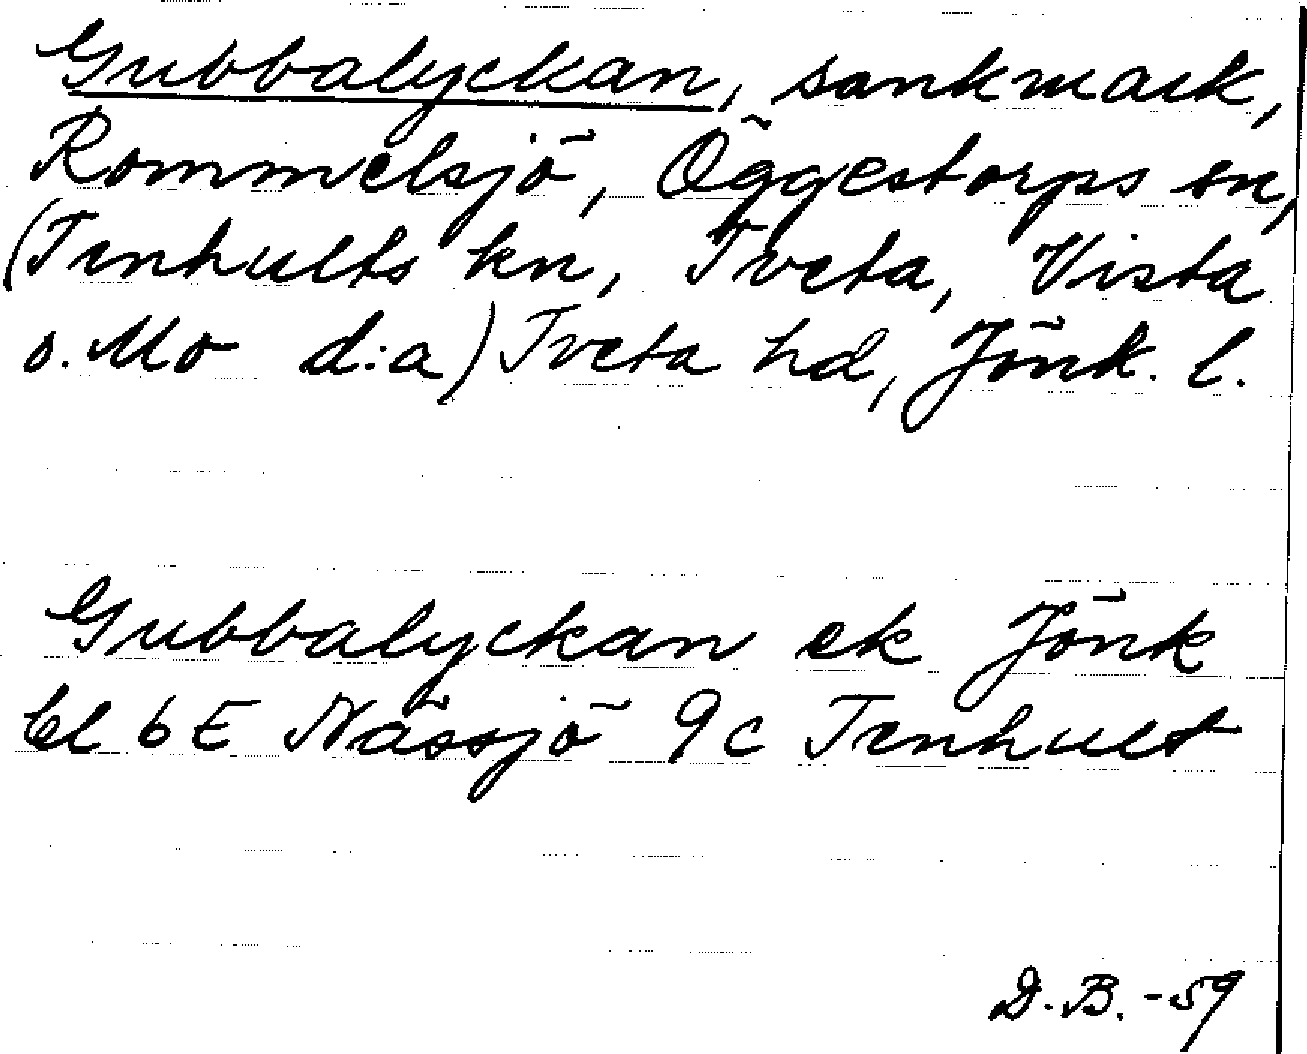 Gubbalyckan, sankmark,
Rommelsjö, Öggestorps sn,
(Tenhults kn, Tveta, Vista
o. Mo d:a) Tveta hd, Jönk. l.
Gubbalyckan ek Jönk
bl 6E Nässjö 9c Tenhult
D.B. -59